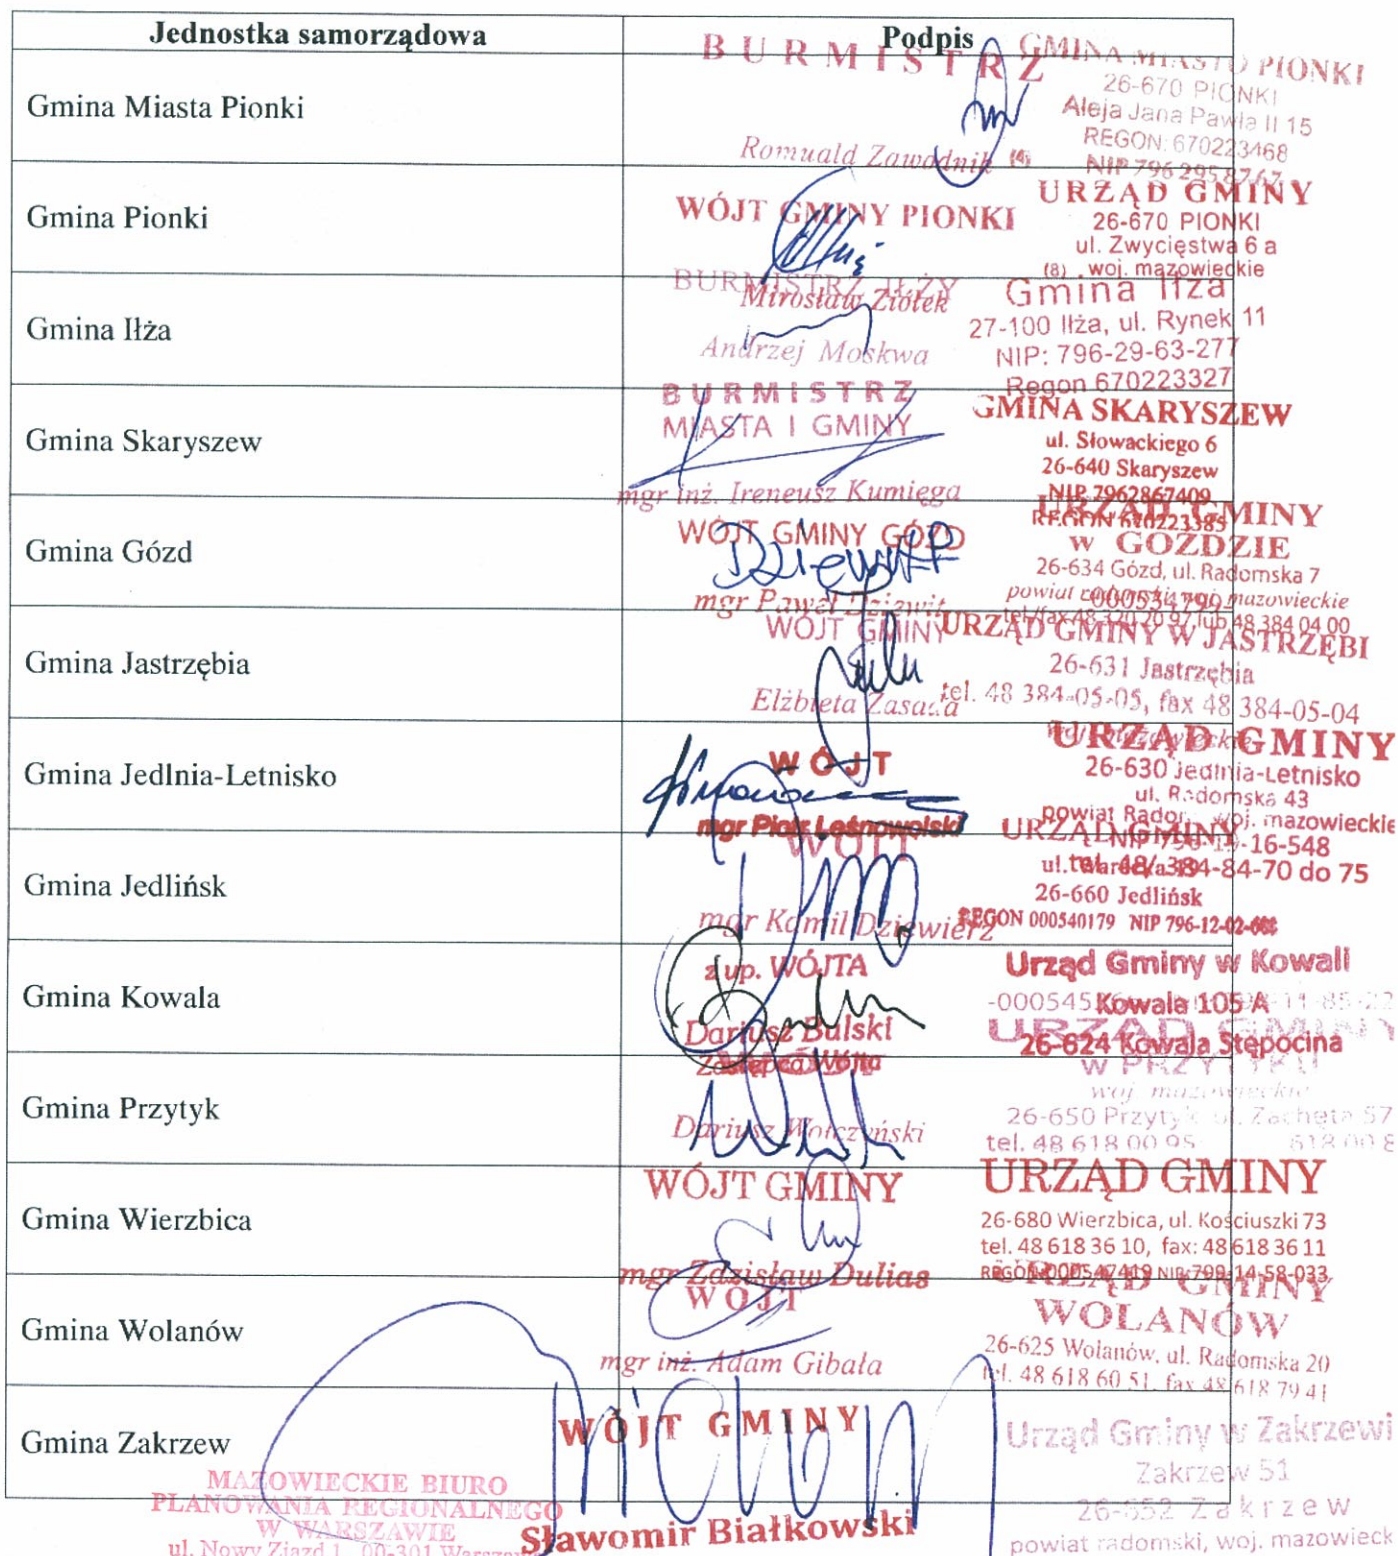 Jednostka samorządowa
Podpis
Gmina Miasta Pionki
BURMISTRZ
Romuald Zawadnik (4)
GMINA MIASTO PIONKI
26-670 PIONKI
Aleja Jana Pawła II 15
REGON: 670223468
NIP 796 295 87 67
Gmina Pionki
WÓJT GMINY PIONKI
Mirosław Ziółek
URZĄD GMINY
26-670 PIONKI
ul. Zwycięstwa 6 a
(8) woj. mazowieckie
Gmina Iłża
BURMISTRZ IŁŻY
Andrzej Moskwa
Gmina Iłża
27-100 Iłża, ul. Rynek 11
NIP: 796-29-63-277
Regon 670223327
Gmina Skaryszew
BURMISTRZ
MIASTA I GMINY
mgr inż. Ireneusz Kumięga
GMINA SKARYSZEW
ul. Słowackiego 6
26-640 Skaryszew
NIP 7962867409
REGON 670223385
Gmina Gózd
WÓJT GMINY GÓZD
mgr Paweł Dziewit
URZĄD GMINY
w GOŹDZIE
26-634 Gózd, ul. Radomska 7
powiat radomski, woj. mazowieckie
000534799
tel/fax 48 320 20 97 lub 48 384 04 00
Gmina Jastrzębia
WÓJT GMINY
Elżbieta Zasada
URZĄD GMINY W JASTRZĘBI
26-631 Jastrzębia
tel. 48 384-05-05, fax 48 384-05-04
woj. mazowieckie
Gmina Jedlnia-Letnisko
WÓJT
mgr Piotr Leśnowolski
URZĄD GMINY
26-630 Jedlnia-Letnisko
ul. Radomska 43
powiat Radom woj. mazowieckie
NIP 16-548
tel. 48/ 384-84-70 do 75
Gmina Jedlińsk
WÓJT
mgr Kamil Dziewierz
URZĄD GMINY
ul. Warecka 19
26-660 Jedlińsk
REGON 000540179 NIP 796-12-02-
Gmina Kowala
z up. WÓJTA
Dariusz Bulski
Zastępca Wójta
Urząd Gminy w Kowali
Kowala 105 A
26-624 Kowala Stępocina
Gmina Przytyk
WÓJT
Dariusz Wołczyński
-11-85-22
URZĄD GMINY
w PRZYTYKU
woj. mazowieckie
26-650 Przytyk ul. Zachęta 57
tel. 48 618 00 95 618 00 8
Gmina Wierzbica
WÓJT GMINY
mgr Zdzisław Dulias
URZĄD GMINY
26-680 Wierzbica, ul. Kościuszki 73
tel. 48 618 36 10, fax: 48 618 36 11
REGON 000547419 NIP: 799-14-58-033
Gmina Wolanów
WÓJT
mgr inż. Adam Gibała
URZĄD GMINY
WOLANÓW
26-625 Wolanów, ul. Radomska 20
tel. 48 618 60 51, fax 48 618 79 41
Gmina Zakrzew
WÓJT GMINY
Sławomir Białkowski
Urząd Gminy w Zakrzewi
Zakrzew 51
26-652 Zakrzew
powiat radomski, woj. mazowieck
MAZOWIECKIE BIURO
PLANOWANIA REGIONALNEGO
W WARSZAWIE
ul. Nowy Zjazd 1, 00-301 Warszawa